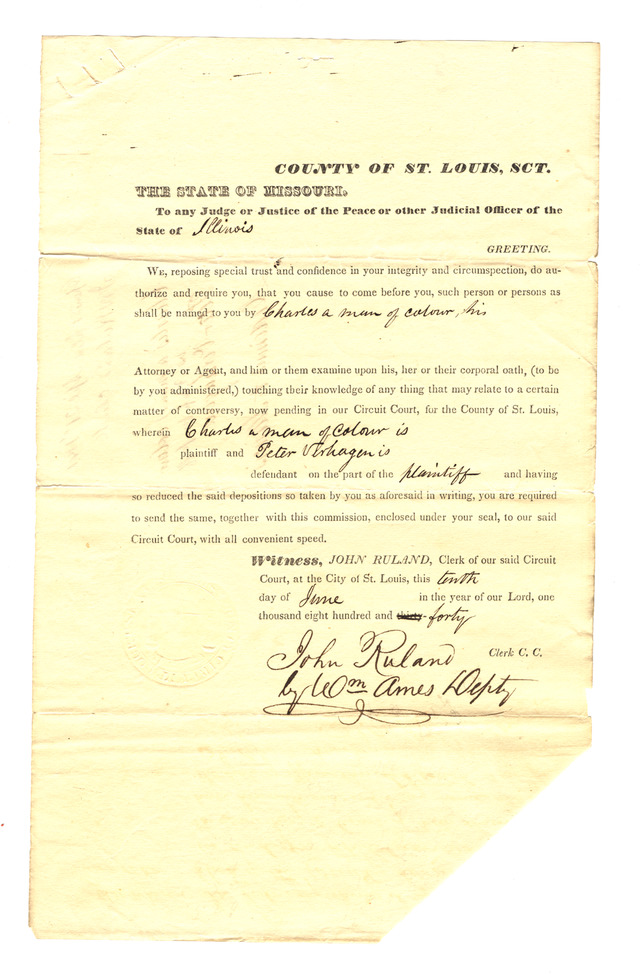 COUNTY OF ST. LOUIS, SCT.
THE STATE OF MISSOURI.
To any Judge or Justice of the Peace or other Judicial Officer of the
State of Illinois
GREETING.
WE, reposing special trust and confidence in your integrity and circumspection, do au-
thorize and require you, that you cause to come before you, such person or persons as
shall be named to you by Charles a man of colour, his
Attorney or Agent, and him or them examine upon his, her or their corporal oath, (to be
by you administered,) touching their knowledge of any thing that may relate to a certain
matter of controversy, now pending in our Circuit Court, for the County of St. Louis,
wherein Charles a man of Colour is
plaintiff and Peter Verhagen is
defendant on the part of the plaintiff and having
so reduced the said depositions so taken by you as aforesaid in writing, you are required
to send the same, together with this commission, enclosed under your seal, to our said
Circuit Court, with all convenient speed.
Witness, JOHN RULAND, Clerk of our said Circuit
Court, at the City of St. Louis, this tenth
day of June in the year of our Lord, one
thousand eight hundred and thirty- forty
John Ruland Clerk C. C.
by Wm Ames Depty